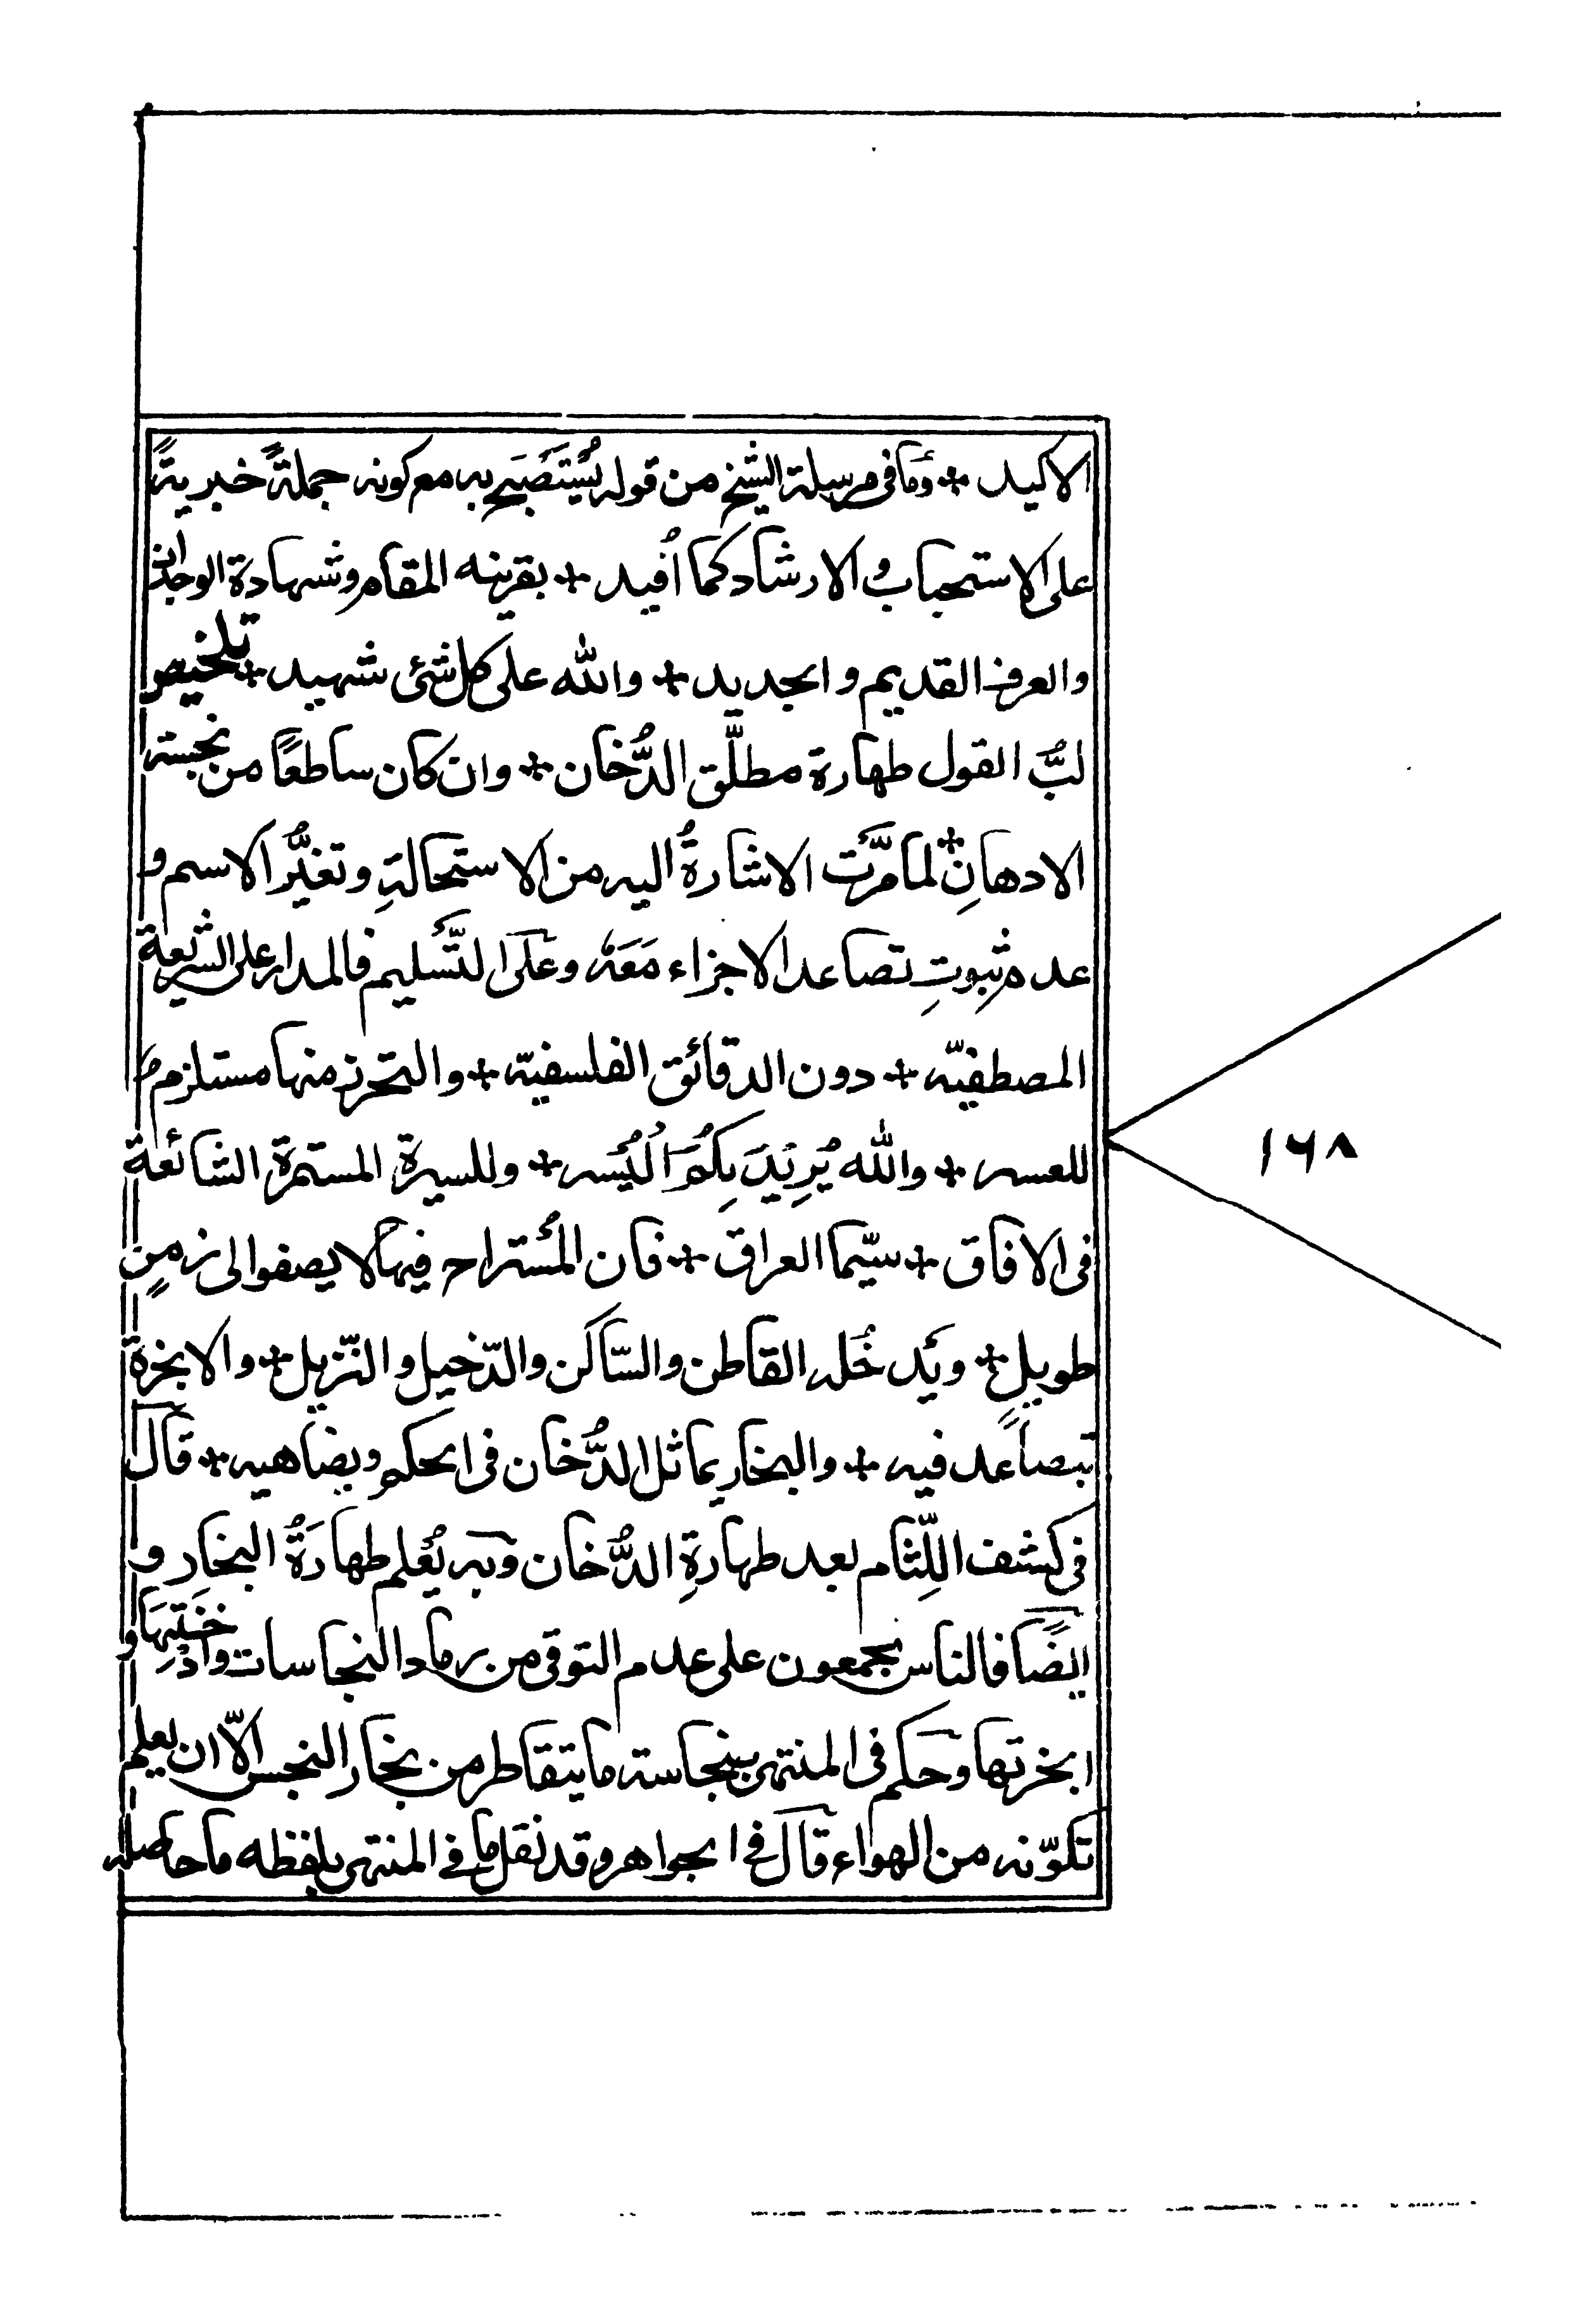 الاكيد + وَمَا فى مرسلة الشيخ من قوله يُسْتَصْبَح به مع كونه جملةً خبريةً
على الاستحباب والارشاد كما اُفيد + بقرينه المقام وشهادة الوجدان
والعرف القديم والجديد + والله على كل شئ شهيد + تلخيص
لبُّ القول طهارة مطلَّق الدُّخان + وان كان ساطعًا من نجسة
الادهانِ + لما مرَّت الاشارةُ اليه من الاستحالةِ وتغيُّر الاسم و
عدم ثبوتِ تصاعد الاجزاء مَعَهُ وعلَى التَّسليم فالمدار على الشريعة
المصطفيّه + دون الدقائق الفلسفيّه + والتحرز منها مستلزم
للعسر + والله يُرِيْدُ بِكُمُ الْيُسْر + وللسيرة المستمرة الشائعة
فى الافاق + سيّما العراق + فان المُستراح فيها لا يصفو الى زمنٍ
طويلٍ + ويَدخُله القاطن والسّاكن والدّخيل والنّزيل + والابخرة
تتصاعد فيه + والبخار يماثل الدُّخان فى الحكم ويضاهيه + قال
فى كشف اللِّثام بعد طهارةِ الدُّخان وبه يُعْلم طهارَةُ البخار و
ايضًا فالناس مجمعون على عدم التوقى من رماد النجاسات وادْخِنَتِهَا و
ابخرتها وحكم فى المنتهى بنجاسة ما يتقاطر من بخار النجس الّا ان يعلم
تكوّنه من الهواء قال فى الجواهر وقد نقل ما فى المنتهى بلفظه ما حاصله
١٦٨